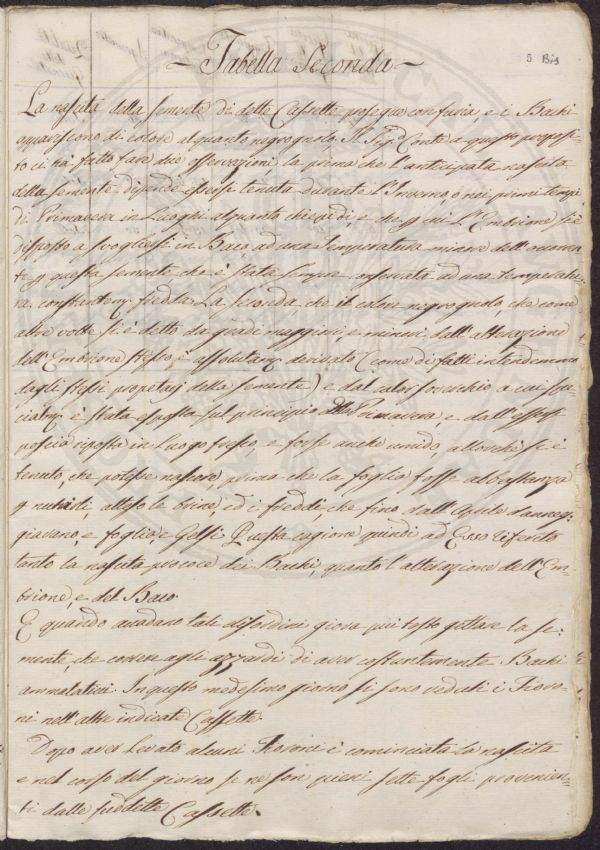 5 Bis
- Tabella Seconda -
La nascita della semente di dette Cassette prosegue con furia, e i Bachi
appariscono di colore alquanto negrognolo. Il Sig.r Conte a questo proposi-
to ci ha fatto fare due osservazioni la prima che l'anticipata nascita
della semente dipende essersi tenuta durante l'Inverno, o nei primi tempi
di Primavera in Luoghi alquanto caldi, e che p cui l'Embrione si è
disposto a svogliersi in Baco, ad una temperatura minore dell'occorren
te p questa semente che è stata sempre conservata ad una temperatu-
ra constantem. fredda. La seconda, che il colore negrognolo, che come
altre volte si è detto da gradi maggiori, e minori dall'alterazione
dell'Embrione stesso, è assolutam. derivato (come di fatti intendemmo
dagli stessi propetarj della semente) e dal calor soverchio a cui spe-
cialm. è stata esposta sul principio della Primavera, e dall'essersi
poscia riposta in Luogo fresco, e forse anche umido, allorchè si è
temuto, che potesse nascere prima che la foglia fosse abbastanza
p nutrirli, atteso le brine, ed i freddi, che fino dall'Aprile danneg-
giavano, e foglia e Gelsi. Questa cagione quindi ad Esso riferito
tanto la nascita precoce dei Bachi, quanto l'alterazione dell'Em-
brione, e del Baco.
E quando accadano tali disordini giova più tosto gettare la se-
mente, che correre agli azzardi di aver costantemente Bachi
ammalaticci. In questo medesimo giorno si sono veduti i Fioro-
ni nell'altre indicate Cassette.
Dopo aver Levato alcuni Fioroni è cominciata la nascita
e nel corso del giorno se ne son pieni sette fogli provenien-
ti dalle suddette Cassette.